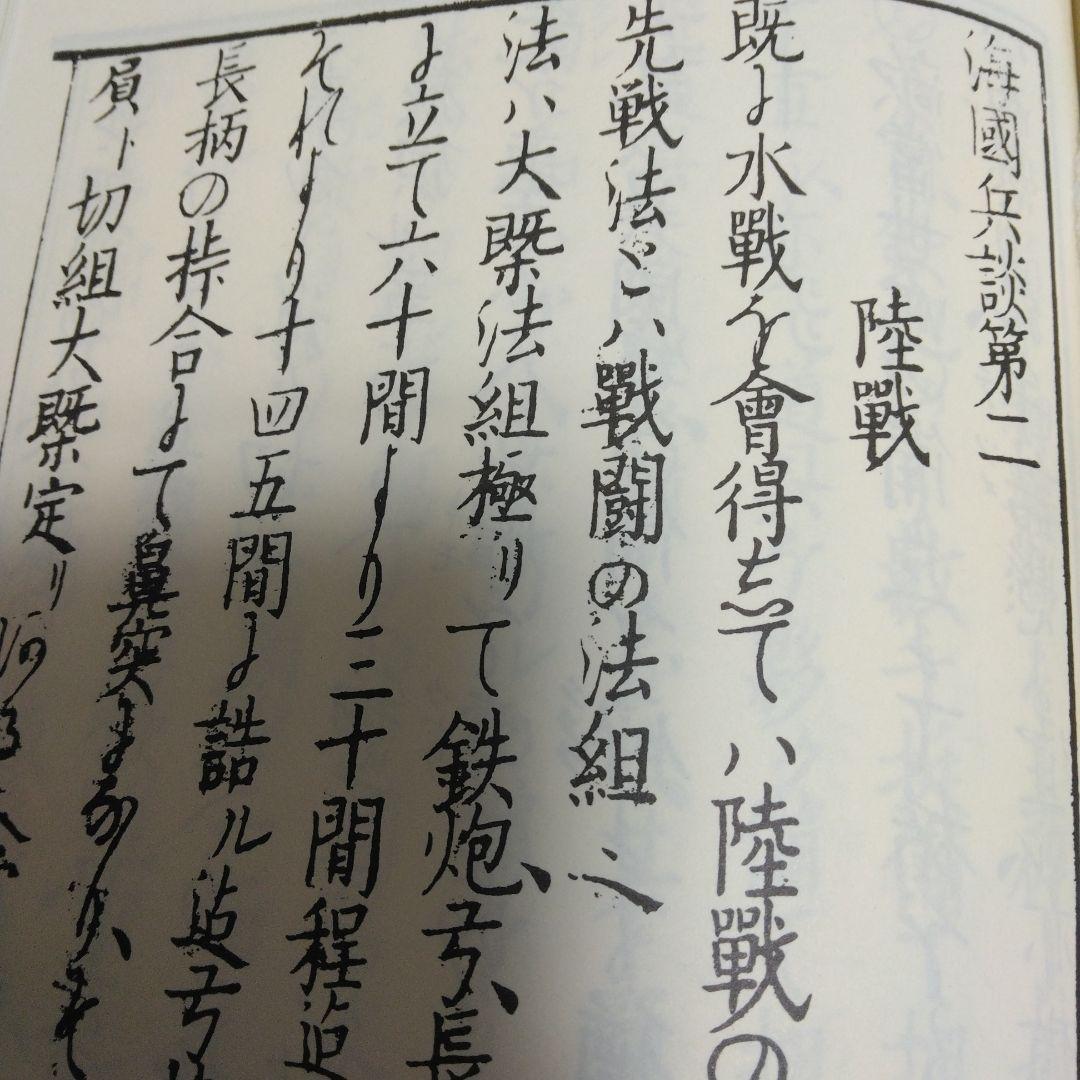 海國兵談第二
陸戰
既に水戰を會得志て ハ陸戰の
先戦法とハ戰闘の法組之
法ハ大槩法組極りて鉄炮、弓、長
に立て六十間より三十間程迠
それより十四五間に詰ル迠弓
長柄の合にて鼻突
員ト切組大槩定り